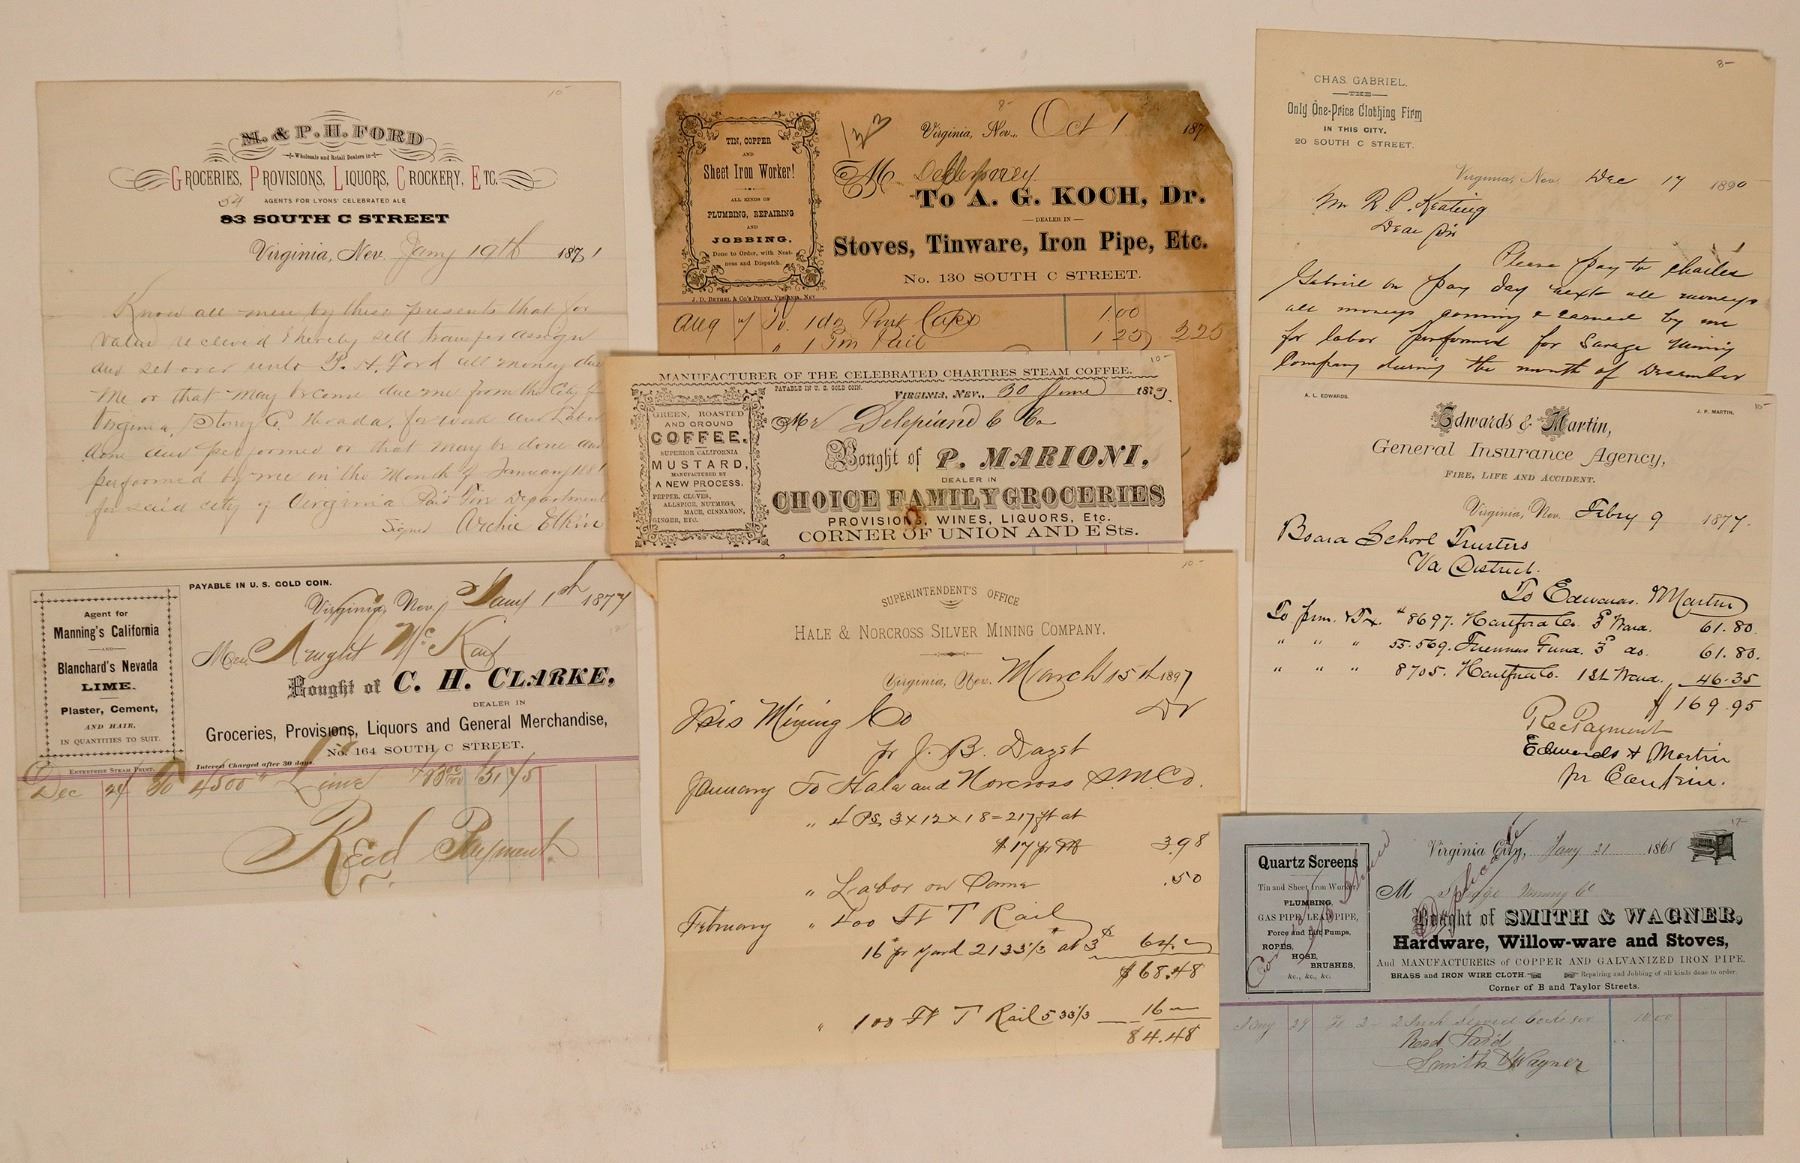 M. & P. H. FORD
Wholesale and Retail Dealers in
GROCERIES, PROVISIONS, LIQUORS, CROCKERY, ETC.
54 AGENTS FOR LYONS' CELEBRATED ALE
83 SOUTH C STREET
Virginia, Nev. Jany 19th 1871
Know all men by these presents that for
value received I hereby sell transfer assign
and set over unto P. H. Ford all money due
me or that may become due me from the City of
Virginia, Storey Co Nevada, for work and Labor
done and performed or that may be done and
performed by me in the Month of January 1881
for said city of Virginia Paid Fire Department
Signed Archie Elkin
TIN, COPPER
AND
Sheet Iron Worker!
ALL KINDS OF
PLUMBING, REPAIRING
AND
JOBBING.
Done to Order, with Neat-
ness and Dispatch.
J. D. BETHEL & CO'S PRINT, VIRGINIA, NEV
Virginia, Nev., Oct 1 187
M
To A. G. KOCH, Dr.
DEALER IN
Stoves, Tinware, Iron Pipe, Etc.
No. 130 SOUTH C STREET.
Aug To 1 dz Cups 1.00
" 1 Tin Pail 1 25 2 25
MANUFACTURER OF THE CELEBRATED CHARTRES STEAM COFFEE.
PAYABLE IN U. S. GOLD COIN.
GREEN, ROASTED
AND GROUND
COFFEE.
SUPERIOR CALIFORNIA
MUSTARD,
MANUFACTURED BY
A NEW PROCESS.
PEPPER, CLOVES,
ALLSPICE, NUTMEGS,
MACE, CINNAMON,
GINGER, ETC.
VIRGINIA, NEV., 30 June 1873.
Mr Delepiand & Co
Bought of P. MARIONI,
DEALER IN
CHOICE FAMILY GROCERIES
PROVISIONS, WINES, LIQUORS, Etc.
CORNER OF UNION AND E Sts.
CHAS. GABRIEL.
THE
Only One-Price Clothing Firm
IN THIS CITY,
20 SOUTH C STREET.
Virginia, Nev. Dec 17 1890
Mr R. P. Keating
Dear Sir
Please pay to Charles
Gabriel on pay day next all moneys
all moneys coming & earned by me
for labor performed for Savage Mining
Company during the month of December
A. L. EDWARDS. J. P. MARTIN.
Edwards & Martin,
General Insurance Agency,
FIRE, LIFE AND ACCIDENT.
Virginia, Nev. Feby 9 1877.
Board School Trustees
Va District.
To Edwards Martin
To prm. # 8697. Hartford Co. 3d Ward. 61.80.
" " " 55.569. Firemans Fund. 3d do. 61.80.
" " " 8705. Hartford Co. 1st Ward. 46.35
$ 169.95
Rec Payment
Edwards & Martin
pr
PAYABLE IN U. S. GOLD COIN.
Agent for
Manning's California
AND
Blanchard's Nevada
LIME.
Plaster, Cement,
AND HAIR,
IN QUANTITIES TO SUIT.
ENTERPRISE STEAM PRINT.
Virginia, Nev., Jany 1st 1877
Mess Knight McKay
Bought of C. H. CLARKE,
DEALER IN
Groceries, Provisions, Liquors and General Merchandise,
No. 164 SOUTH C STREET.
Interest Charged after 30 days.
Dec 24 To 4500 # Lime
Recd Payment
SUPERINTENDENT'S OFFICE
HALE & NORCROSS SILVER MINING COMPANY.
Virginia, Nev. March 15th 1897
Mining Co Dr
pr J. B. Dazet
January To Hale and Norcross S.M.Co.
" 4 Ps 3 x 12 x 18 = 217 ft at
$ 17 pr M 3.98
" Labor on Same .50
February " 400 Ft T Rail
16# pr yard 2133 1/3# at 3¢ 64.
$68.48
" 100 Ft T Rail 533 1/3 16
84.48
Quartz Screens
Tin and Sheet Iron Worker
PLUMBING,
GAS PIPE, LEAD PIPE,
Force and Lift Pumps,
ROPES,
HOSE,
BRUSHES,
&c., &c., &c.
Virginia City, Jany 31 1868
M Mining Co
Bought of SMITH & WAGNER,
Hardware, Willow-ware and Stoves,
And MANUFACTURERS of COPPER AND GALVANIZED IRON PIPE.
BRASS and IRON WIRE CLOTH. Repairing and Jobbing of all kinds done to order.
Corner of B and Taylor Streets.
Jany 29 To 2 - 2 Inch 10 00
Recd Paid
Smith & Wagner